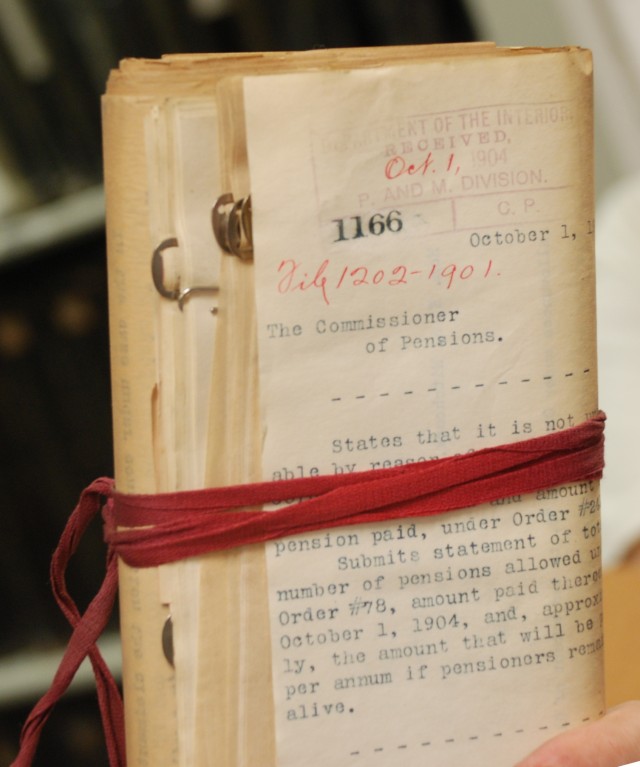 DEPARTMENT OF THE INTERIOR
RECEIVED,
Oct. 1, 1904
P. AND M. DIVISION.
1166 C. P.
October 1, 1
File 1202-1901.
The Commissioner
of Pensions.
States that it is not
able by reason of
and amount
pension paid, under Order #
Submits statement of
number of pensions allowed
Order #78, amount paid
October 1, 1904, and,
ly, the amount that will be
per annum if pensioners
alive.